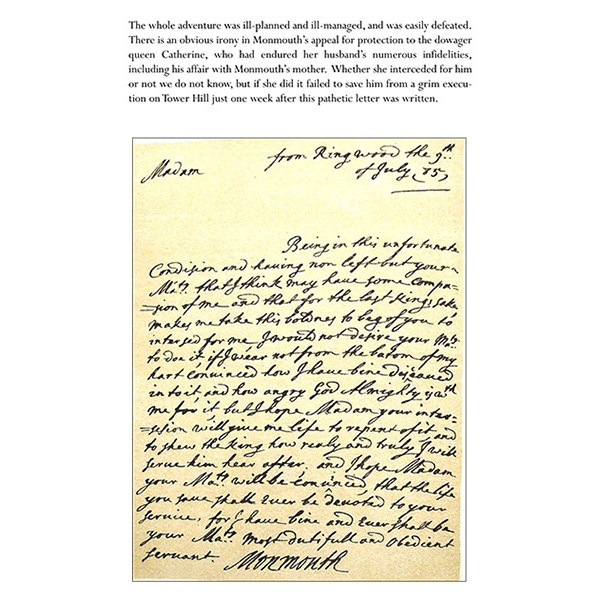 The whole adventure was ill-planned and ill-managed, and was easily defeated.
There is an obvious irony in Monmouth's appeal for protection to the dowager
queen Catherine, who had endured her husband's numerous infidelities,
including his affair with Monmouth's mother. Whether she interceded for him
or not we do not know, but if she did it failed to save him from a grim execu-
tion on Tower Hill just one week after this pathetic letter was written.
from Ringwood the 9th
Madam
of July (85)
Being in this unfortunate
Condision and having non left but your
Ma:ty that I think may have some compa-
=sion of me and that for the last Kings sake
makes me take this boldnes to beg of you to
intersed for me I would not desire your Ma:ty
to doe it if I wear not from the botom of my
hart convinced how I have bine disceaved
in to it and how angry God Almighty is wth
me for it but I hope Madam your inter-
=sesion will give me life to repent of it and
to shew the King how realy and truly I will
serve him hear after. and I hope Madam
your Ma:ty will be convinced that the life
you save shall Ever be devoted to your
service, for I have bine and Ever shall be
your Ma:ty most dutifull and obedient
servant. Monmouth